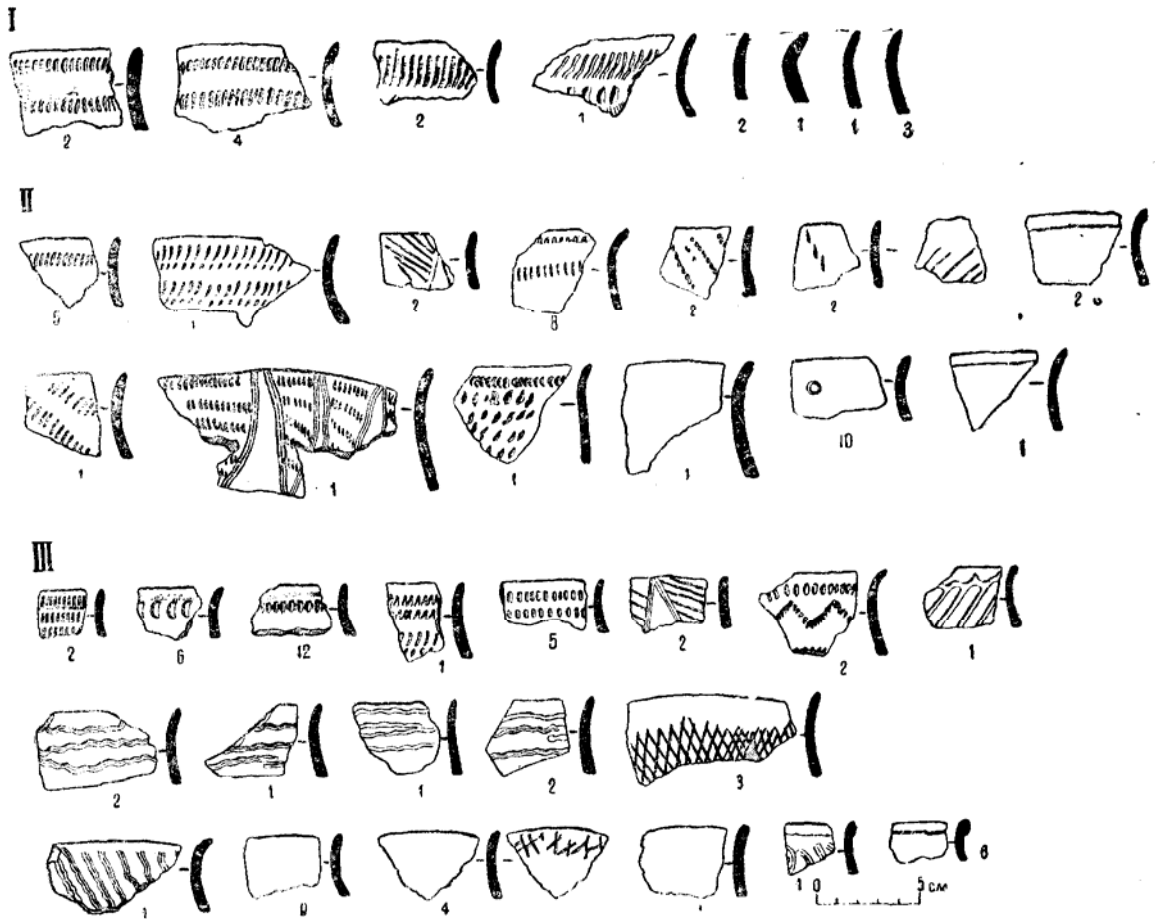 I
2 4 2 1 2 1 1 3
II
1 2 8 2 2 2
1 1 1 1 10 1
III
2 6 12 1 5 2 2 1
2 1 1 2 3
1 4 1 0 5 см 6